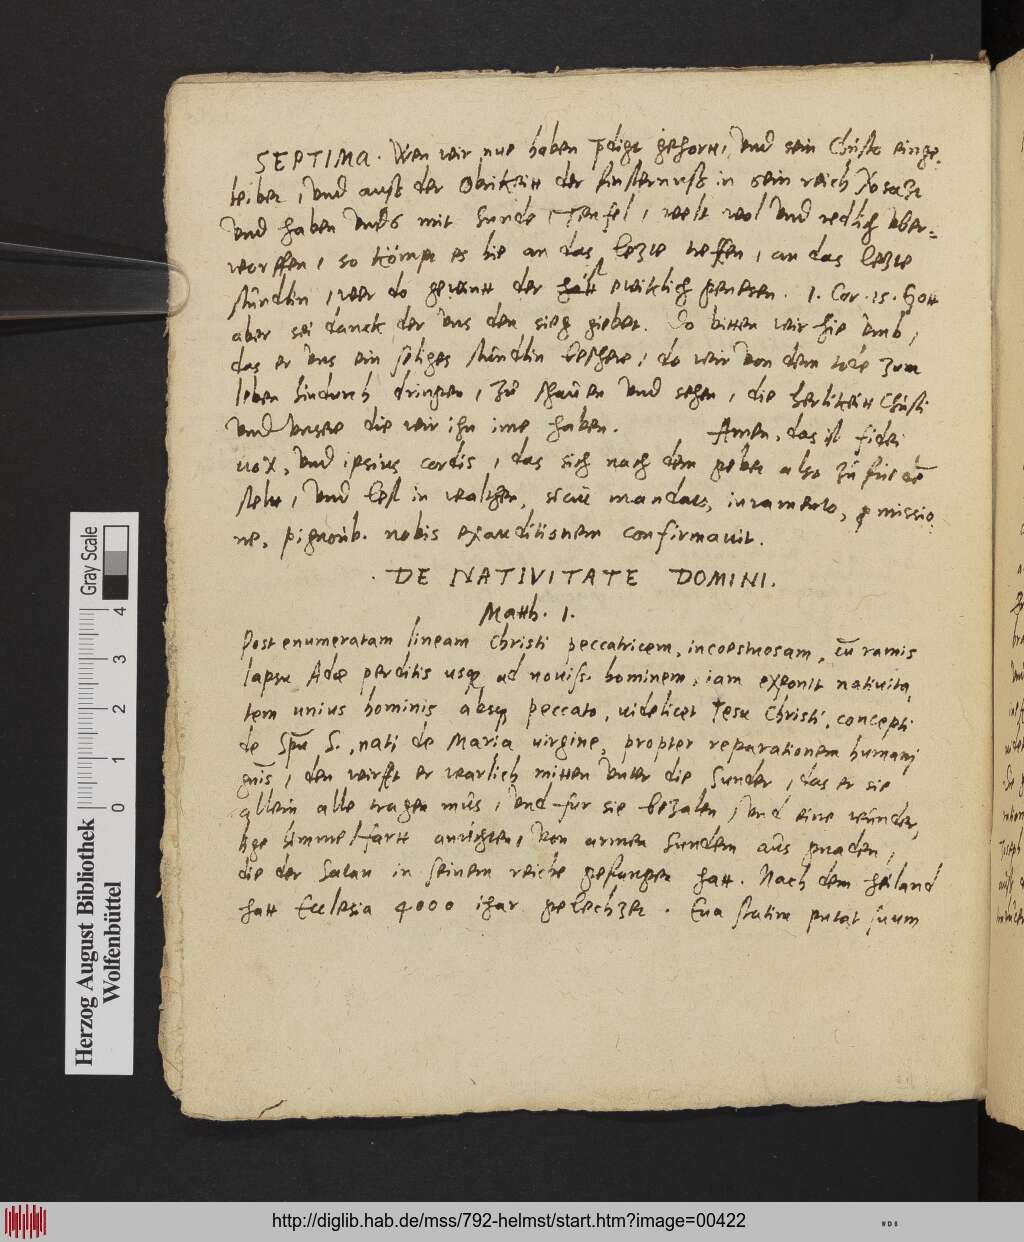 SEPTIMA. Wen wir nue haben pdigt gehortt, und sein Christo einge,
leibet, und aust der Obrikeitt der finsternust in sein reich
und haben unds mit Sunde, Teufel, welt wol und redlich uber=
worffen, so kömpt es hie an das lezte treffen, an das lezte
stündlin, wer do gewintt der hatt ewiklich genesen. 1. Cor. 15. Gott
aber sei danck der uns den sieg giebet. Do bitten wir hie umb,
das er uns ein seliges stündlin beschere, do wir von dem tode zum
leben hindurch dringen, zu schauen und sehen, die herlikeitt Christi
und unsere die wir ihn ime haben. Amen, das ist fidei
vox, und ipsius cordis, das sich nach dem gebet also zu friede
stelt, und lest in walthen, sicut mandato, iuramento, pmissio
ne, pignorib. nobis exauditionem confirmauit.
. DE NATIVITATE DOMINI.
Matth. 1.
Post enumeratam lineam Christi peccatricem, incoestuosam, cū ramis
lapsu Adæ perditis usq ad nouiss. hominem, iam exponit natiuita,
tem unius hominis absq peccato, uidelicet Iesu Christi, concepti
de Spū S., nati de Maria uirgine, propter reparationem humani
gnis, den wirfft er warlich mitten unter die Sunder, das er sie
allein alle tragen mus, und fur sie bezalen, und eine wunder,
lige himmelfartt anrichten, von armen Sundern aus gnaden,
die der Satan in seinem reiche gefangen hatt. Nach dem heiland
hatt Ecclesia 4000 ihar gelechzet. Eua statim putat suum
Herzog August Bibliothek
Wolfenbüttel
Gray Scale
0 1 2 3 4
http://diglib.hab.de/mss/792-helmst/start.htm?image=00422
WDB